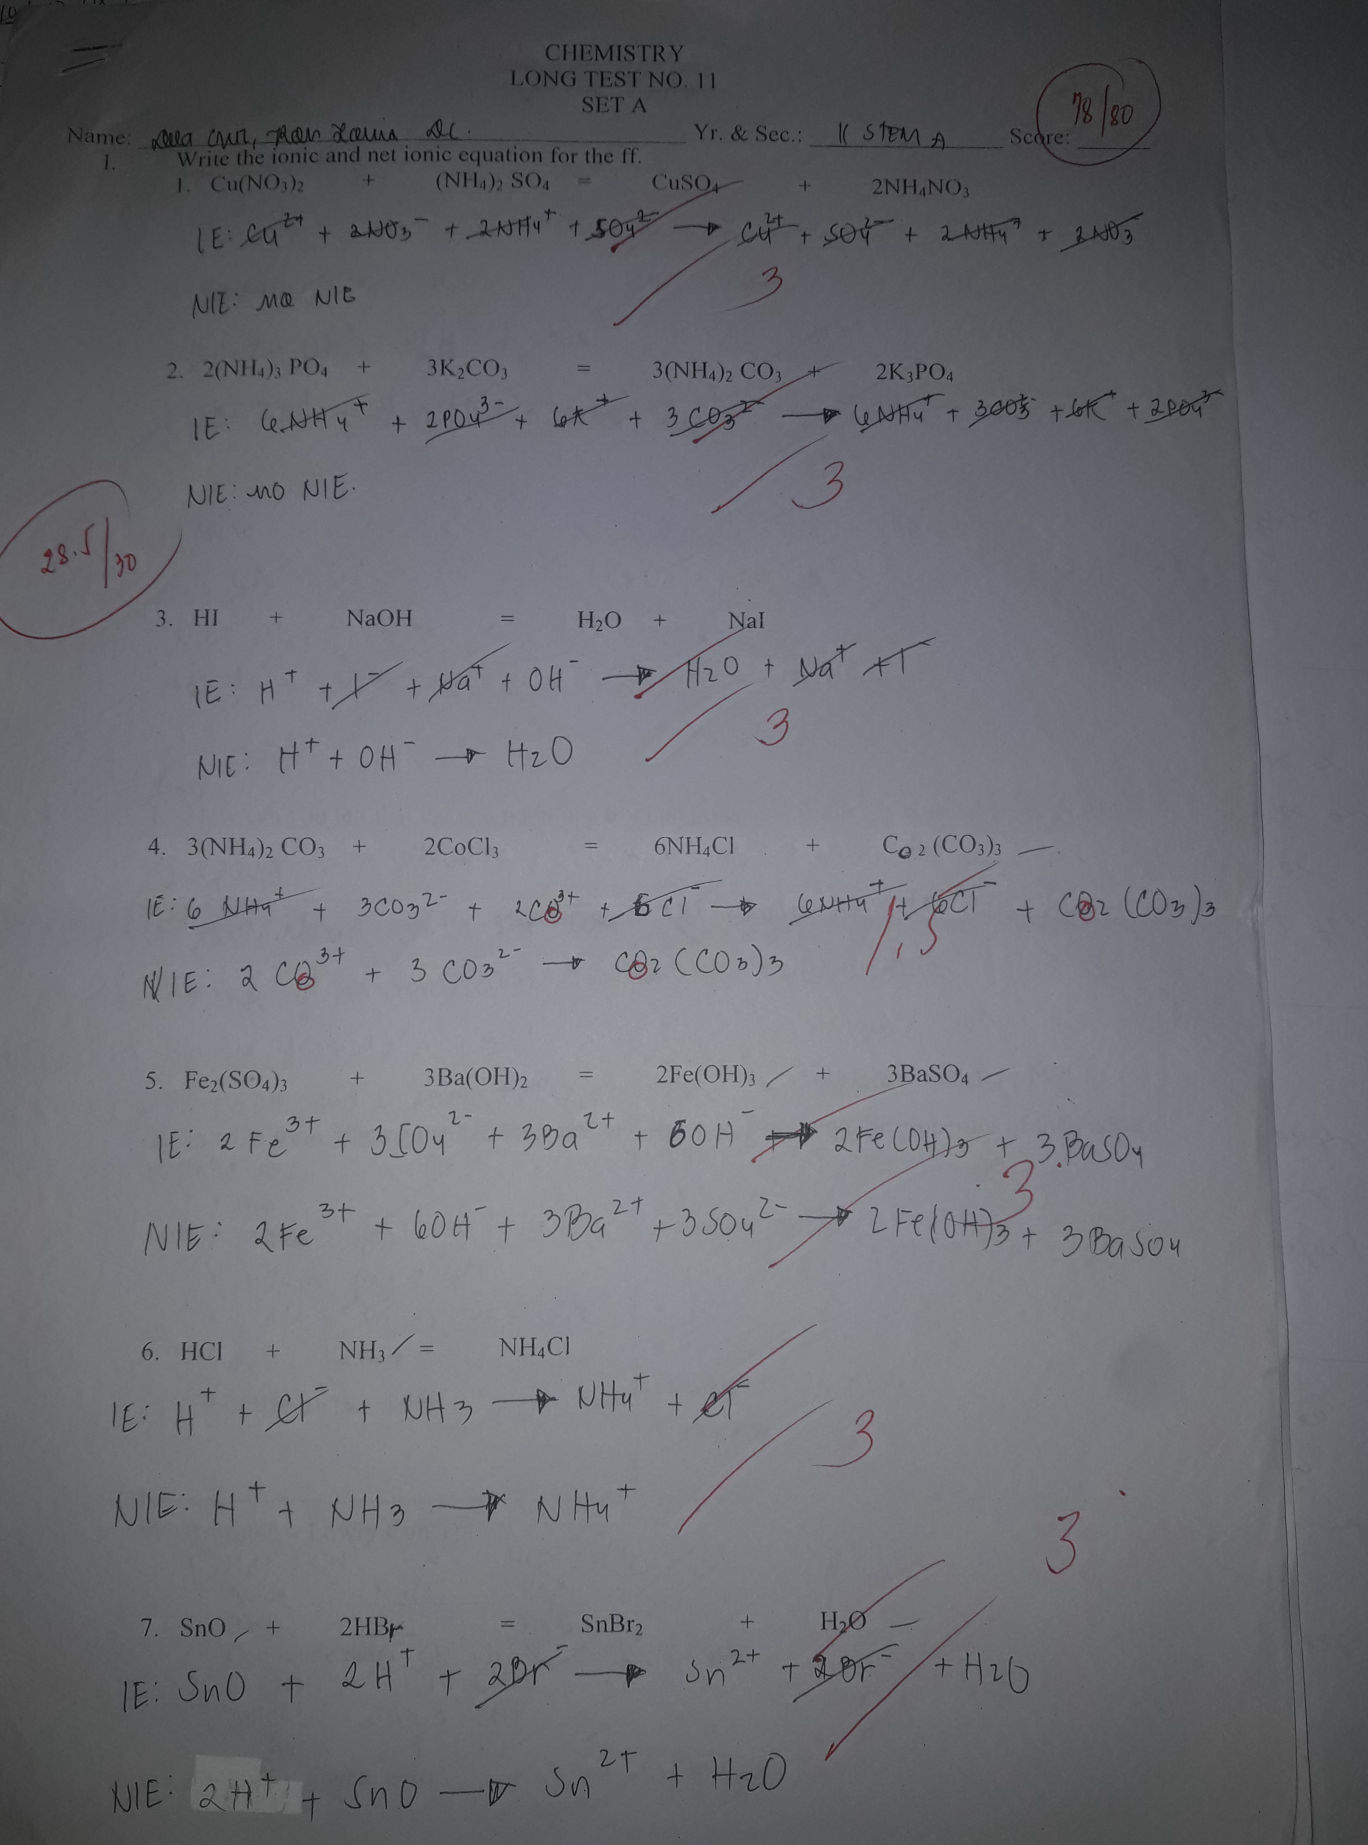 CHEMISTRY
LONG TEST NO. 11
SET A
78/80
Name: Yr. & Sec.: 11 STEM A Score:
I. Write the ionic and net ionic equation for the ff.
1. Cu(NO₃)₂ + (NH₄)₂ SO₄ = CuSO₄ + 2NH₄NO₃
IE: Cu²⁺ + 2NO₃⁻ + 2NH₄⁺ + SO₄²⁻ → Cu²⁺ + SO₄²⁻ + 2NH₄⁺ + 2NO₃⁻
3
NIE: no NIE
2. 2(NH₄)₃ PO₄ + 3K₂CO₃ = 3(NH₄)₂ CO₃ + 2K₃PO₄
IE: 6NH₄⁺ + 2PO₄³⁻ + 6K⁺ + 3CO₃²⁻ → 6NH₄⁺ + 3CO₃²⁻ + 6K⁺ + 2PO₄³⁻
NIE: no NIE. 3
28.5/30
3. HI + NaOH = H₂O + NaI
IE: H⁺ + I⁻ + Na⁺ + OH⁻ → H₂O + Na⁺ + I⁻
3
NIE: H⁺ + OH⁻ → H₂O
4. 3(NH₄)₂ CO₃ + 2CoCl₃ = 6NH₄Cl + Co₂(CO₃)₃
IE: 6 NH₄⁺ + 3CO₃²⁻ + 2CO³⁺ + 6Cl⁻ → 6NH₄⁺ + 6Cl⁻ + CO₂(CO₃)₃
1.5
NIE: 2CO³⁺ + 3CO₃²⁻ → CO₂(CO₃)₃
5. Fe₂(SO₄)₃ + 3Ba(OH)₂ = 2Fe(OH)₃ + 3BaSO₄
IE: 2Fe³⁺ + 3SO₄²⁻ + 3Ba²⁺ + 6OH⁻ → 2Fe(OH)₃ + 3BaSO₄
3
NIE: 2Fe³⁺ + 6OH⁻ + 3Ba²⁺ + 3SO₄²⁻ → 2Fe(OH)₃ + 3BaSO₄
6. HCl + NH₃ = NH₄Cl
IE: H⁺ + Cl⁻ + NH₃ → NH₄⁺ + Cl⁻
3
NIE: H⁺ + NH₃ → NH₄⁺
3
7. SnO + 2HBr = SnBr₂ + H₂O
IE: SnO + 2H⁺ + 2Br⁻ → Sn²⁺ + 2Br⁻ + H₂O
NIE: 2H⁺ + SnO → Sn²⁺ + H₂O